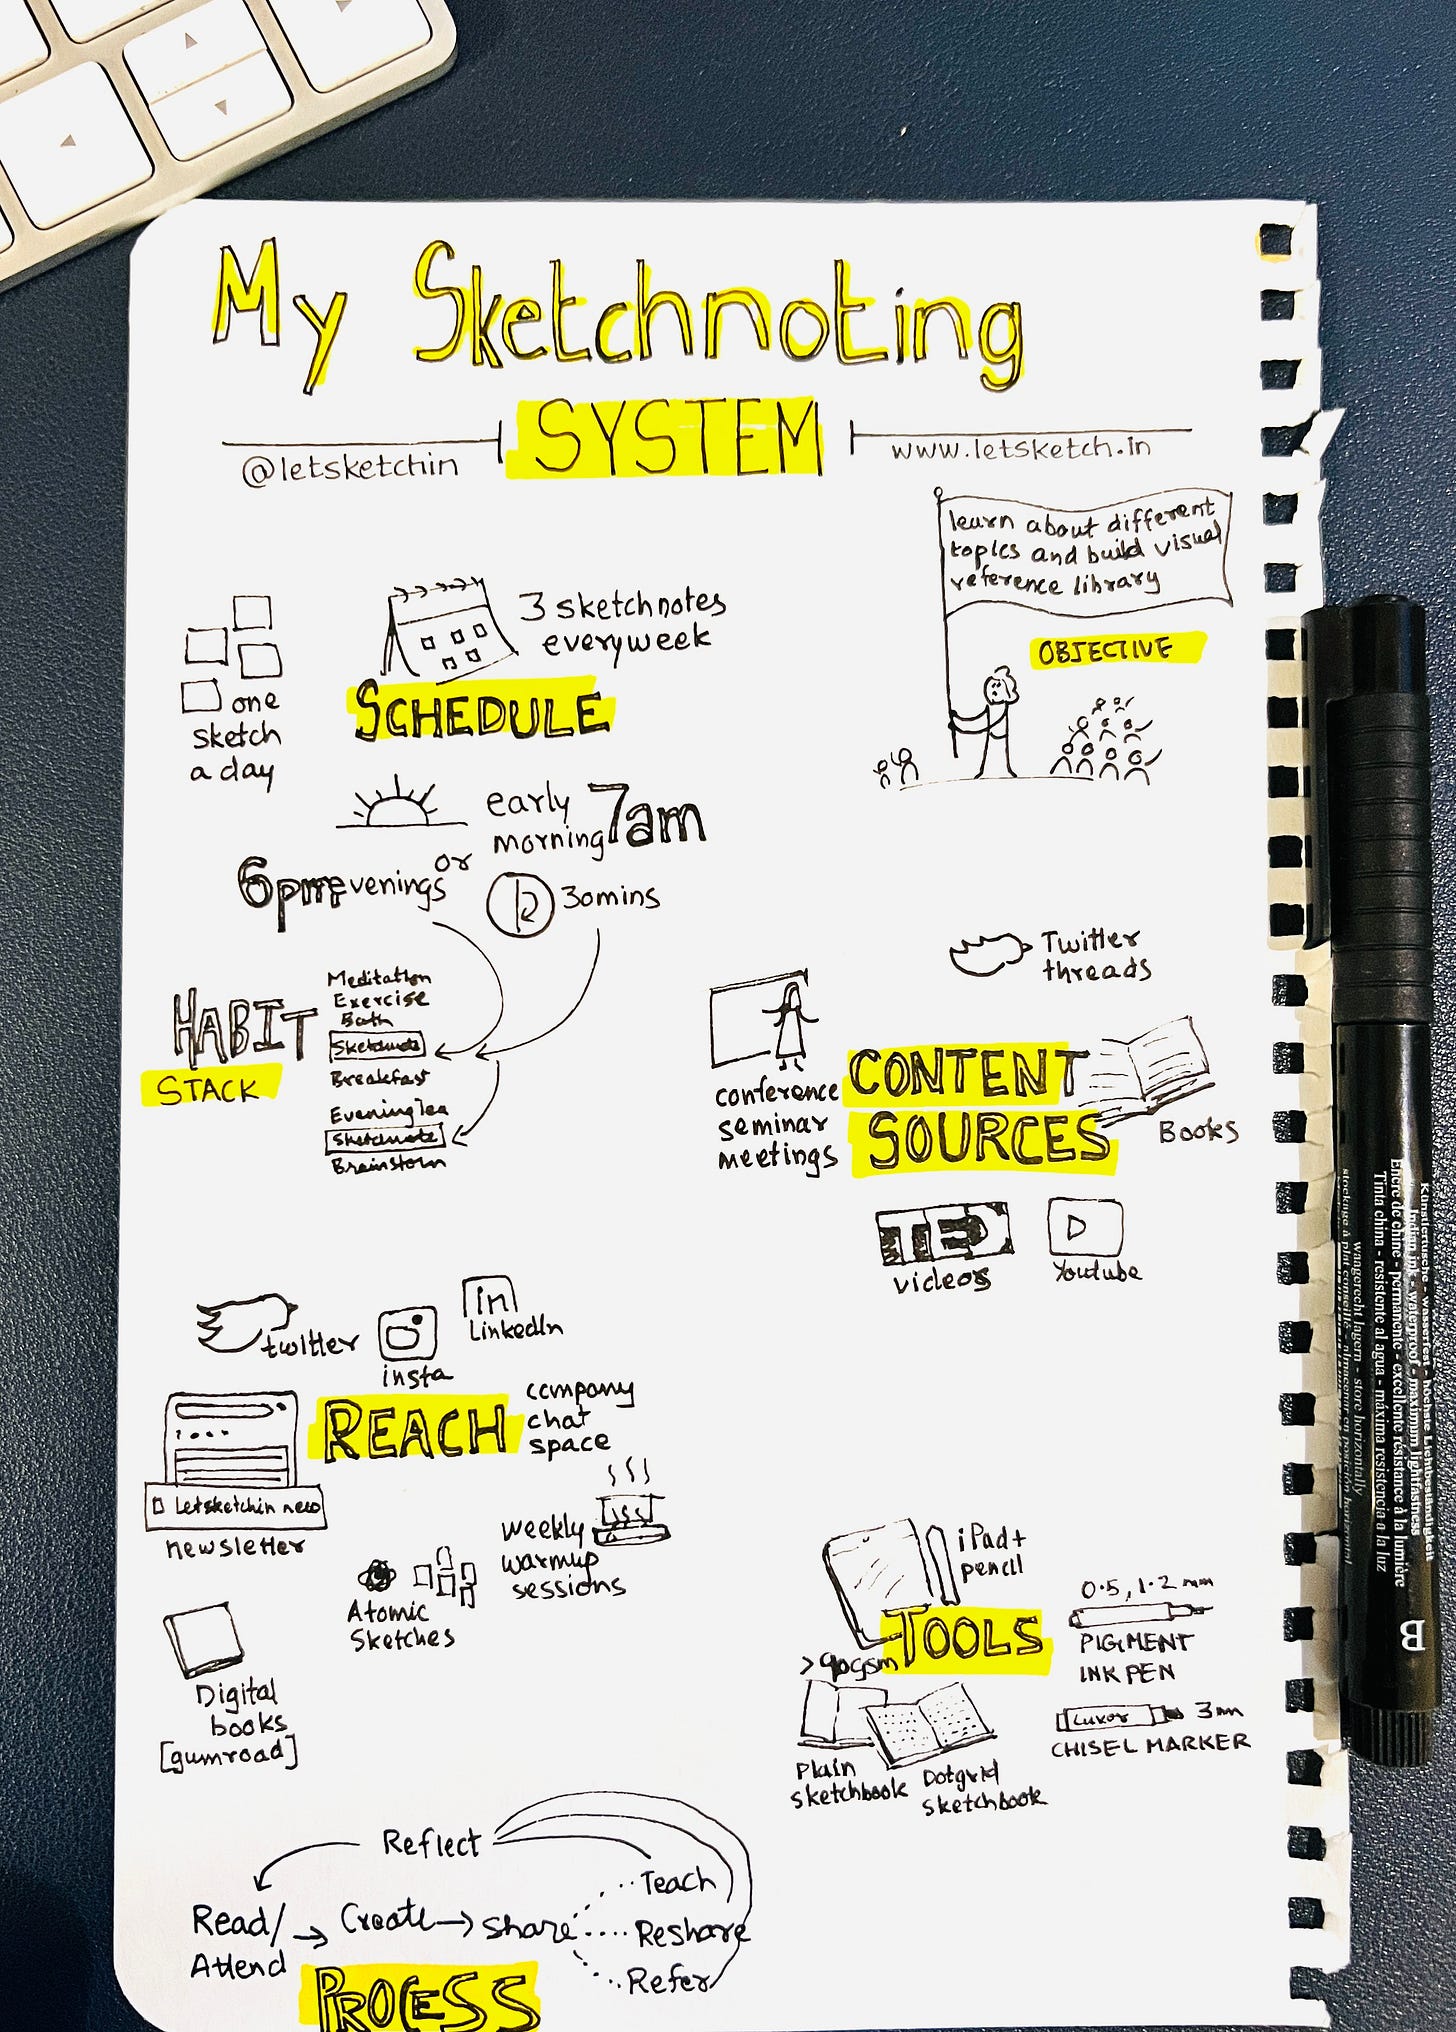 My Sketchnoting
SYSTEM
@letsketchin
www.letsketch.in
learn about different
topics and build visual
reference library
OBJECTIVE
3 sketchnotes
everyweek
SCHEDULE
one
sketch
a day
early
morning 7am
or
6pm evenings
30mins
HABIT
STACK
Meditation
Exercise
Bath
Sketchnote
Breakfast
Evening Tea
Sketchnote
Brainstorm
Twitter
threads
conference
seminar
meetings
CONTENT
SOURCES
Books
TED
videos
Youtube
twitter
insta
in
LinkedIn
REACH
company
chat
space
Letsketchin news
newsletter
weekly
warmup
sessions
Atomic
Sketches
Digital
books
[gumroad]
iPad+
pencil
TOOLS
0.5, 1.2 mm
PIGMENT
INK PEN
>90gsm
Luxor
3mm
CHISEL MARKER
Plain
sketchbook
Dotgrid
sketchbook
Reflect
Read/
Attend
Create
Share
Teach
Reshare
Refer
PROCESS
Encre de chine - permanente - excellente résistance à la lumière
Tinta china - resistente al agua - máxima resistencia a la luz
waagerecht lagern - store horizontally
B